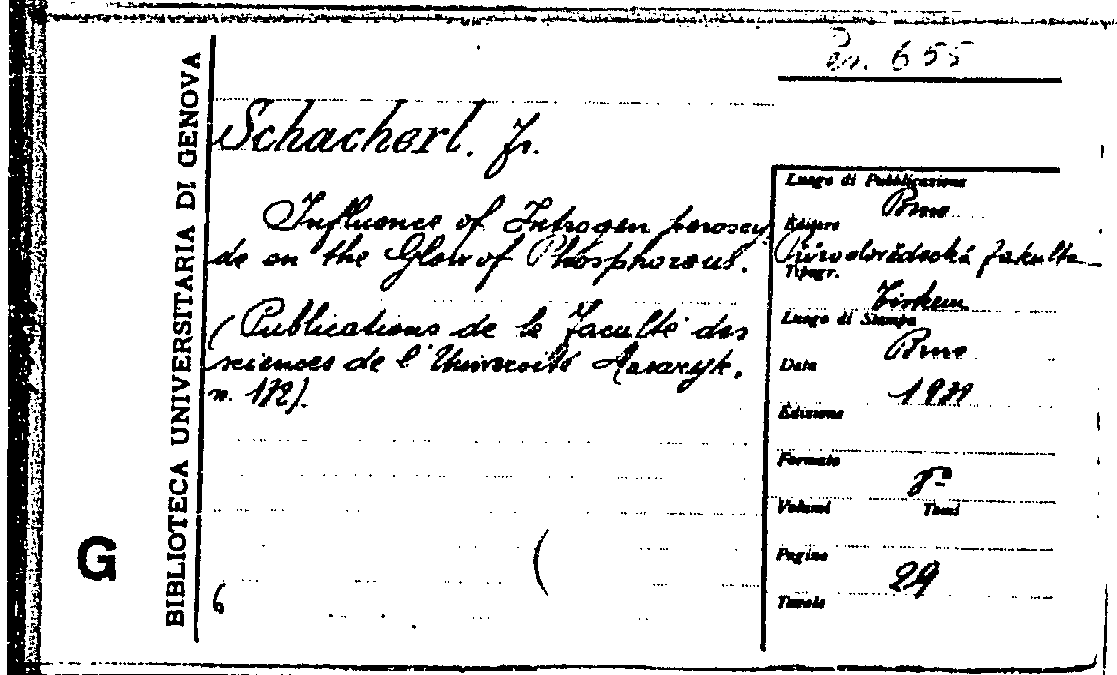 Per. 655
BIBLIOTECA UNIVERSITARIA DI GENOVA
G
Schacherl. Fr.
Influence of Nitrogen peroxy
de on the Glow of Phosphorous.
(Publications de la Faculté des
sciences de l'Université Masaryk.
n. 172).
6
Luogo di Pubblicazione
Brno
Editore
Přírodovědecká fakulta
Tipogr.
Luogo di Stampa
Brno
Data
Edizione
Formato
8°
Volumi Tomi
Pagine
29
Tavole